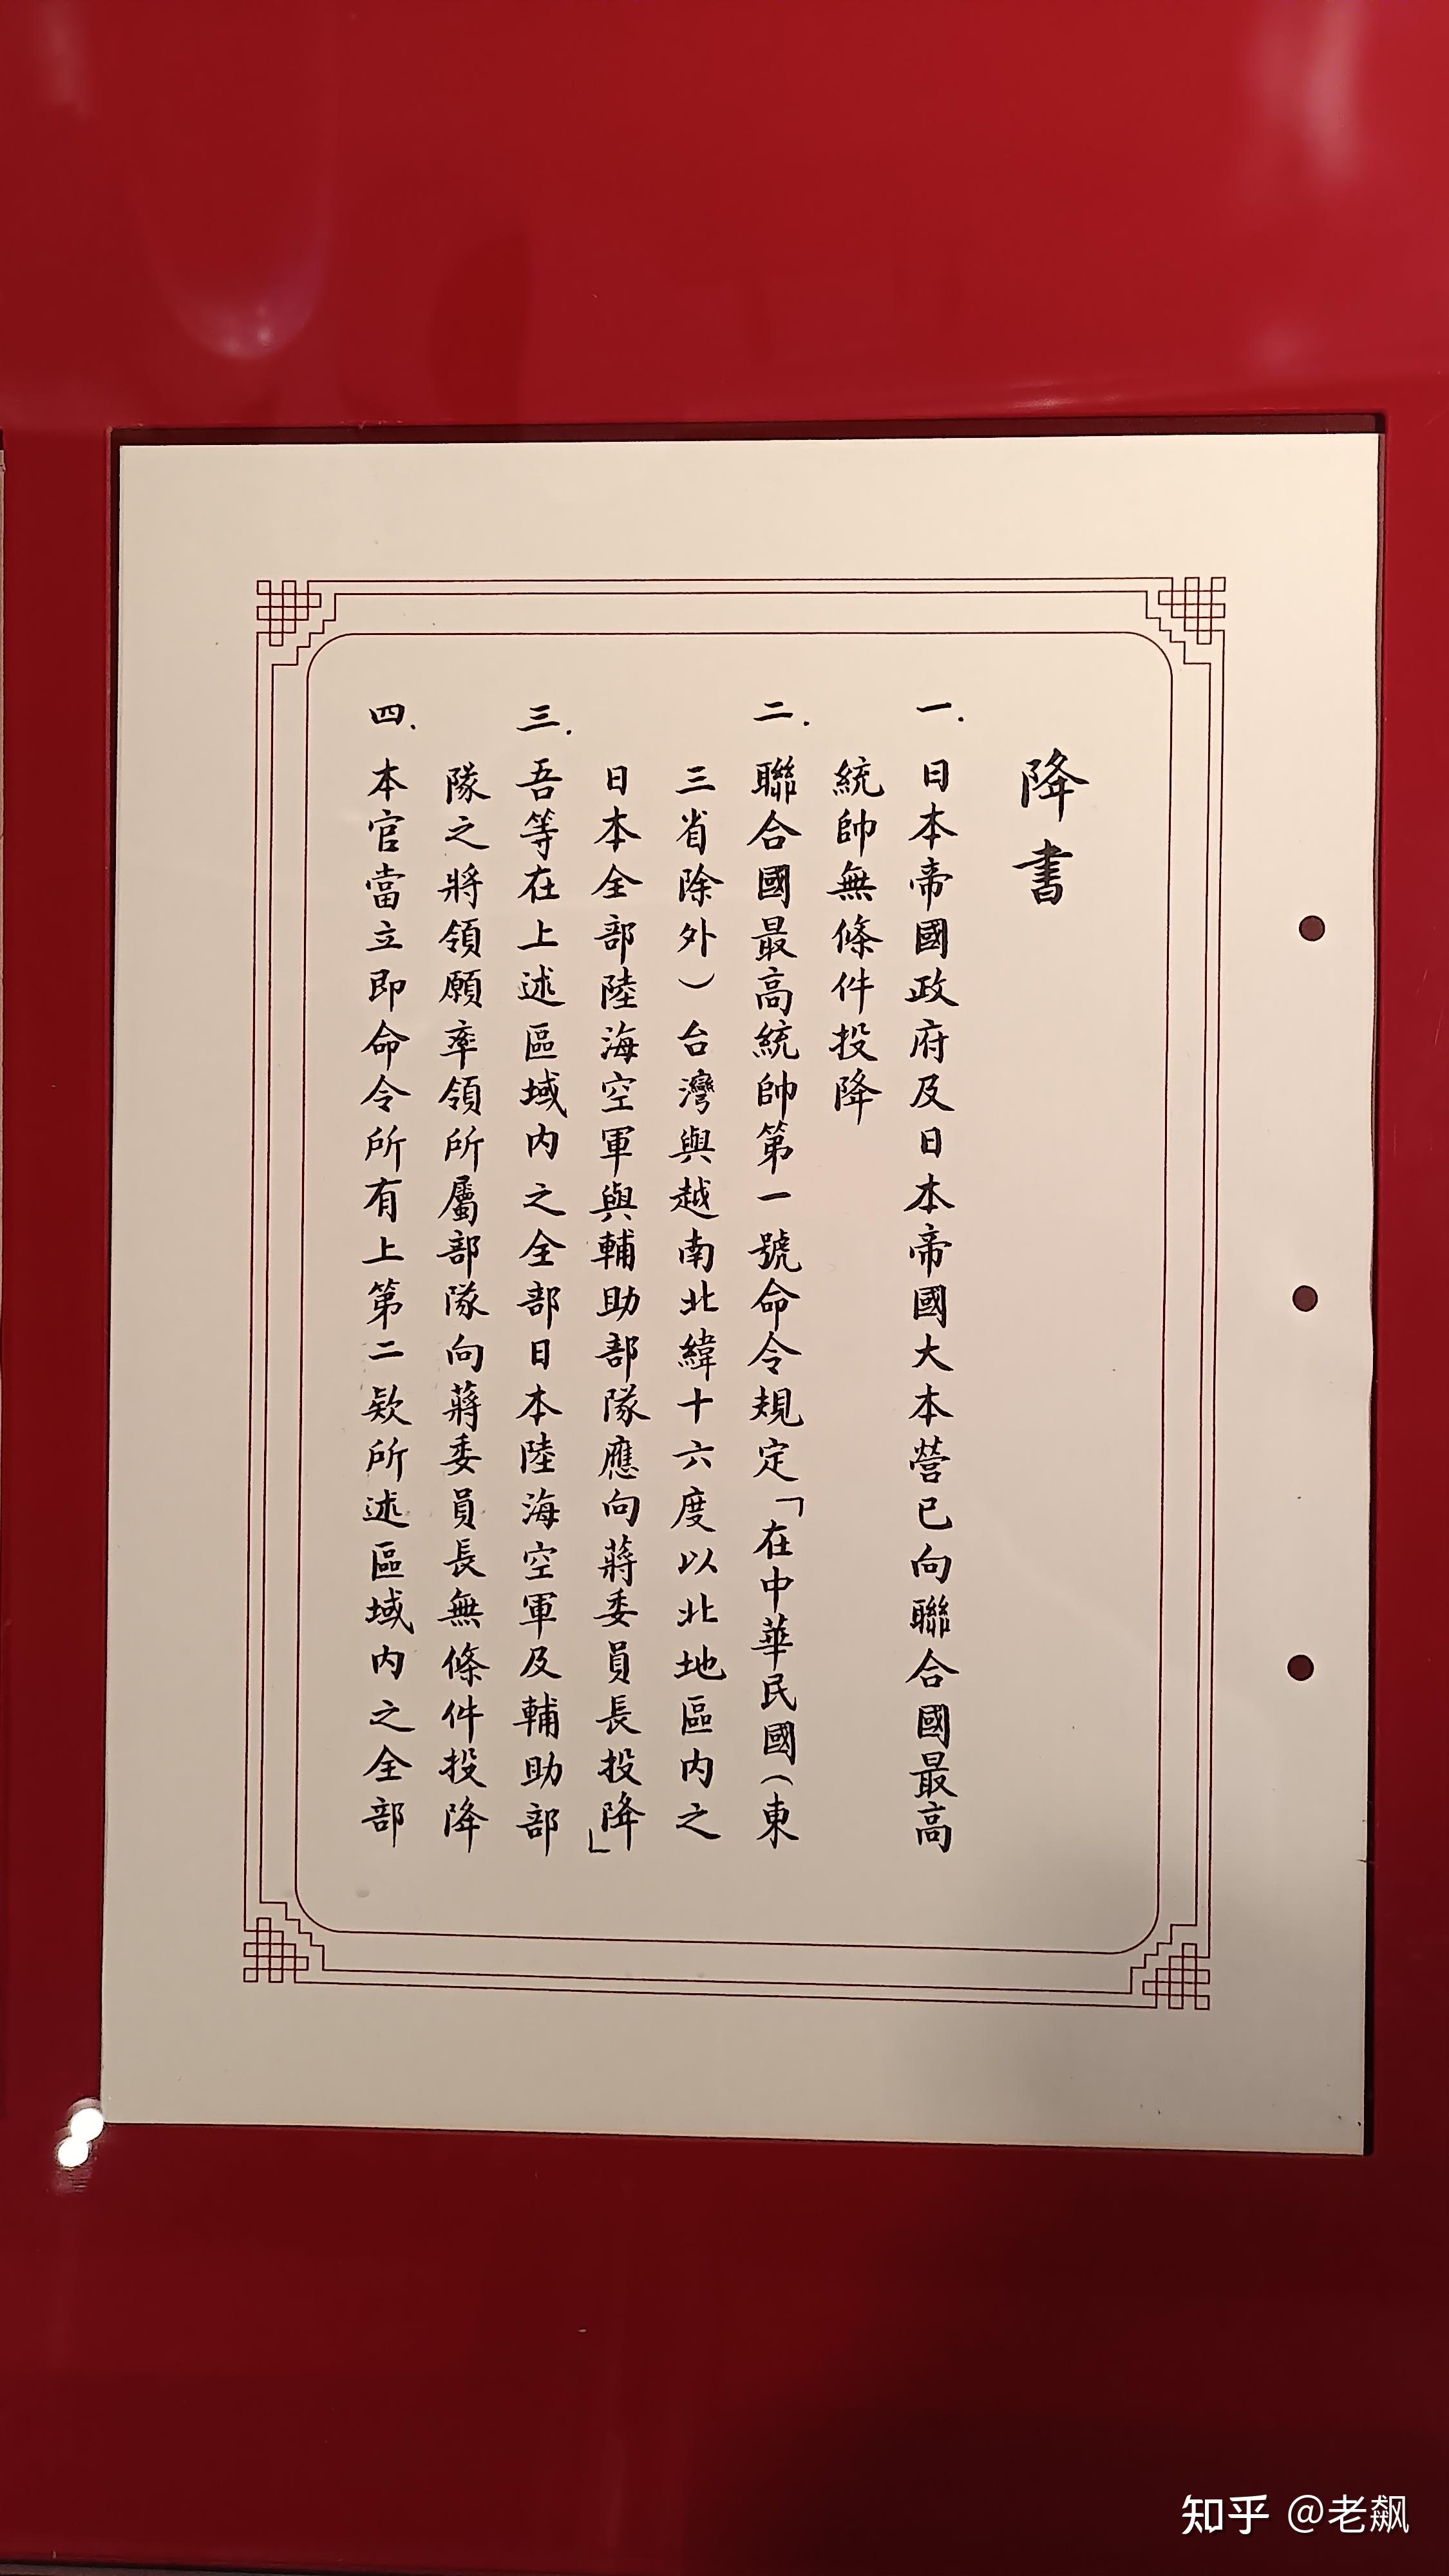 降書
一.日本帝國政府及日本帝國大本營已向聯合國最高
統帥無條件投降
二.聯合國最高統帥第一號命令規定「在中華民國(東
三省除外)台灣與越南北緯十六度以北地區內之
日本全部陸海空軍與輔助部隊應向蔣委員長投降」
三.吾等在上述區域內之全部日本陸海空軍及輔助部
隊之將領願率領所屬部隊向蔣委員長無條件投降
四.本官當立即命令所有上第二款所述區域內之全部
知乎 @老飙